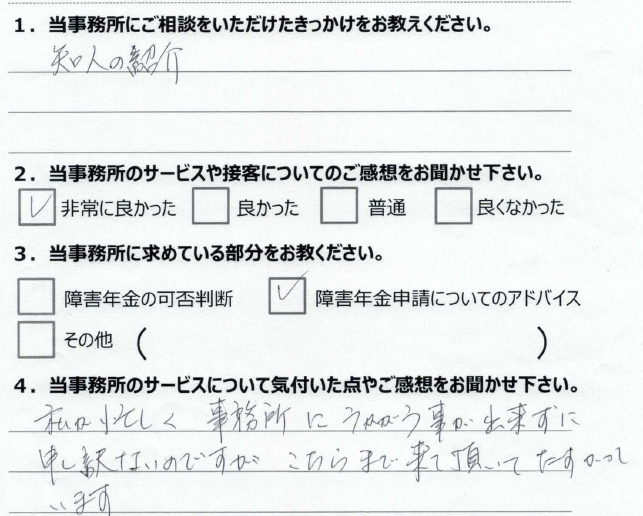 1. 当事務所にご相談をいただけたきっかけをお教えください。
知人の紹介
2. 当事務所のサービスや接客についてのご感想をお聞かせ下さい。
非常に良かった 良かった 普通 良くなかった
3. 当事務所に求めている部分をお教ください。
障害年金の可否判断 障害年金申請についてのアドバイス
その他 ( )
4. 当事務所のサービスについて気付いた点やご感想をお聞かせ下さい。
私が忙しく 事務所に うかがう事が出来ずに
申し訳ないのですが こちらまで来て頂いて たすかって
います